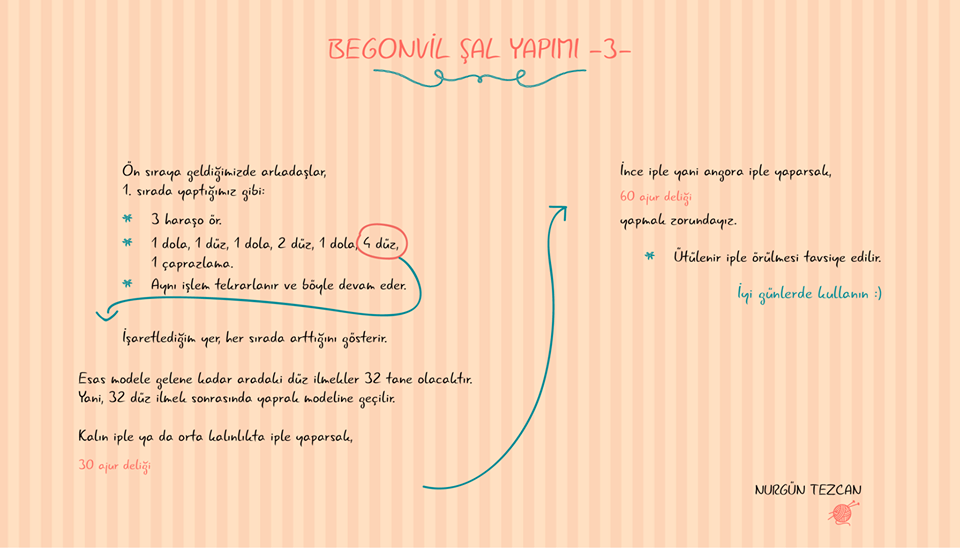 BEGONVİL ŞAL YAPIMI -3-
Ön sıraya geldiğimizde arkadaşlar,
1. sırada yaptığımız gibi:
* 3 haraşo ör.
* 1 dola, 1 düz, 1 dola, 2 düz, 1 dola, 4 düz,
1 çaprazlama.
* Aynı işlem tekrarlanır ve böyle devam eder.
İşaretlediğim yer, her sırada arttığını gösterir.
Esas modele gelene kadar aradaki düz ilmekler 32 tane olacaktır.
Yani, 32 düz ilmek sonrasında yaprak modeline geçilir.
Kalın iple ya da orta kalınlıkta iple yaparsak,
30 ajur deliği
İnce iple yani angora iple yaparsak,
60 ajur deliği
yapmak zorundayız.
* Ütülenir iple örülmesi tavsiye edilir.
İyi günlerde kullanın :)
NURGÜN TEZCAN